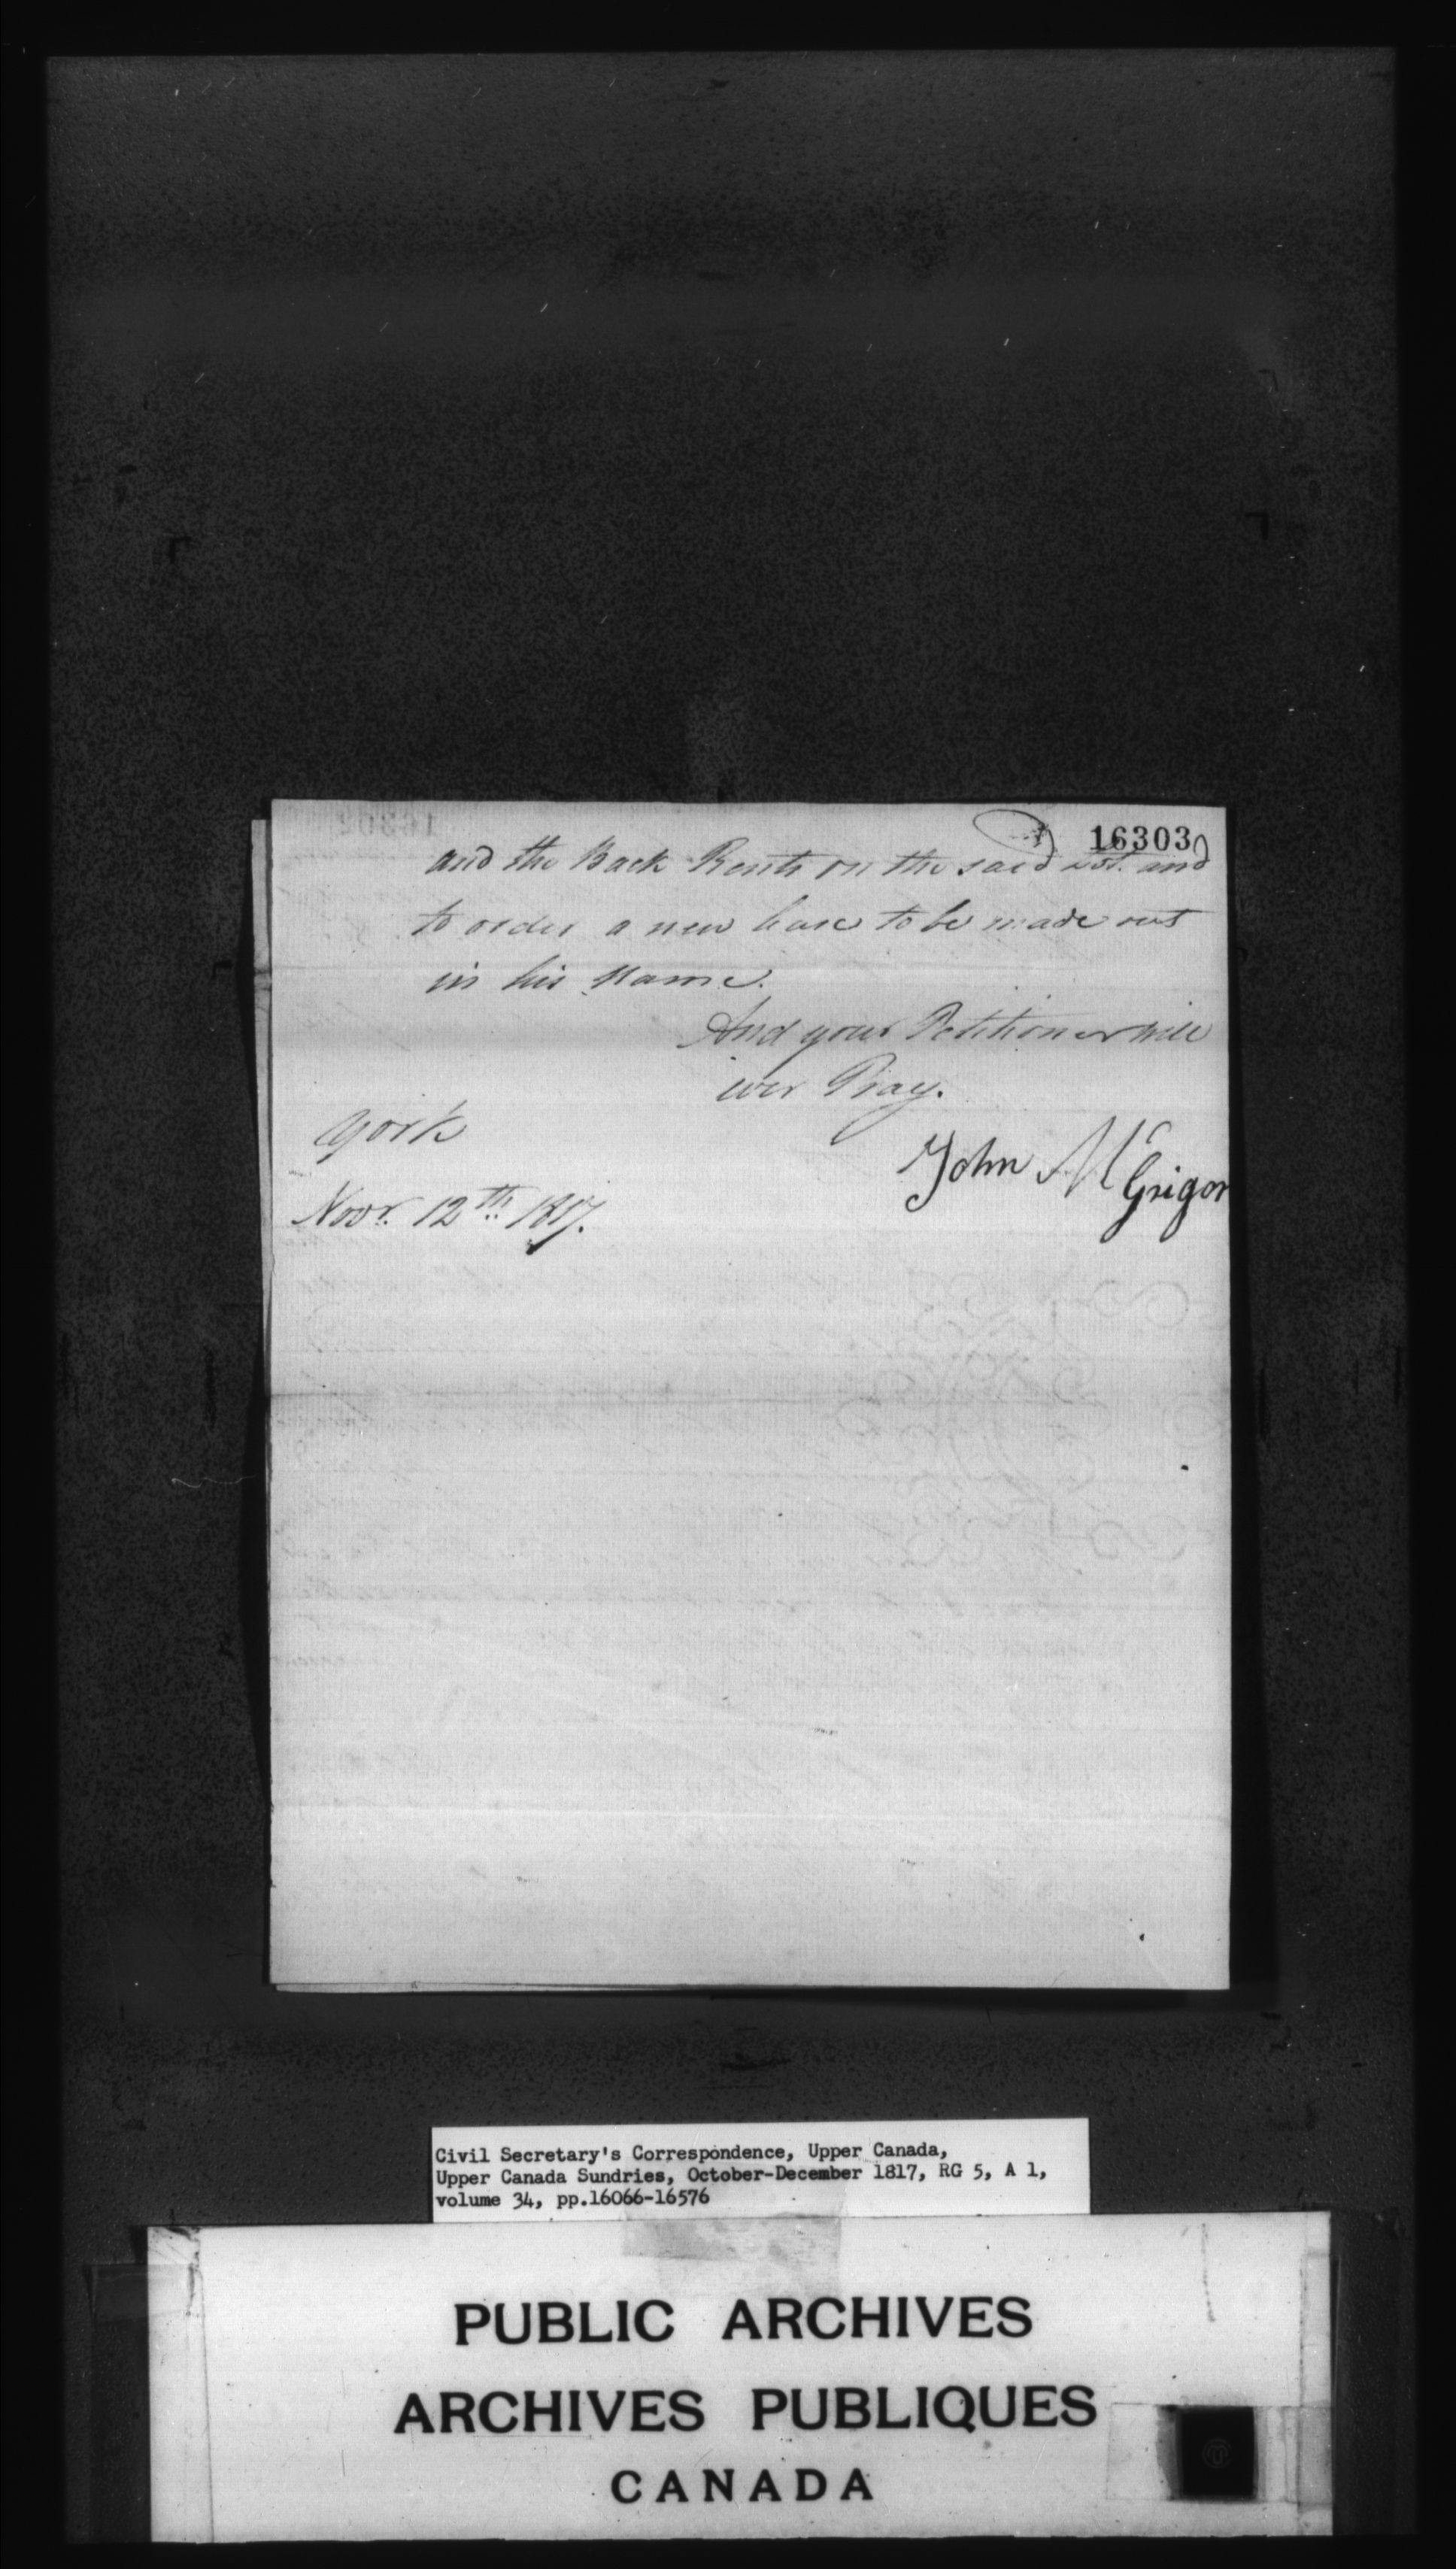 16303
and the Back Rents on the said Lot. and
to order a new lease to be made out
in his Name.
And your Petitioner will
ever Pray.
York
Novr. 12th 1817.
John McGrigor
Civil Secretary's Correspondence, Upper Canada,
Upper Canada Sundries, October-December 1817, RG 5, A 1,
volume 34, pp.16066-16576
PUBLIC ARCHIVES
ARCHIVES PUBLIQUES
CANADA